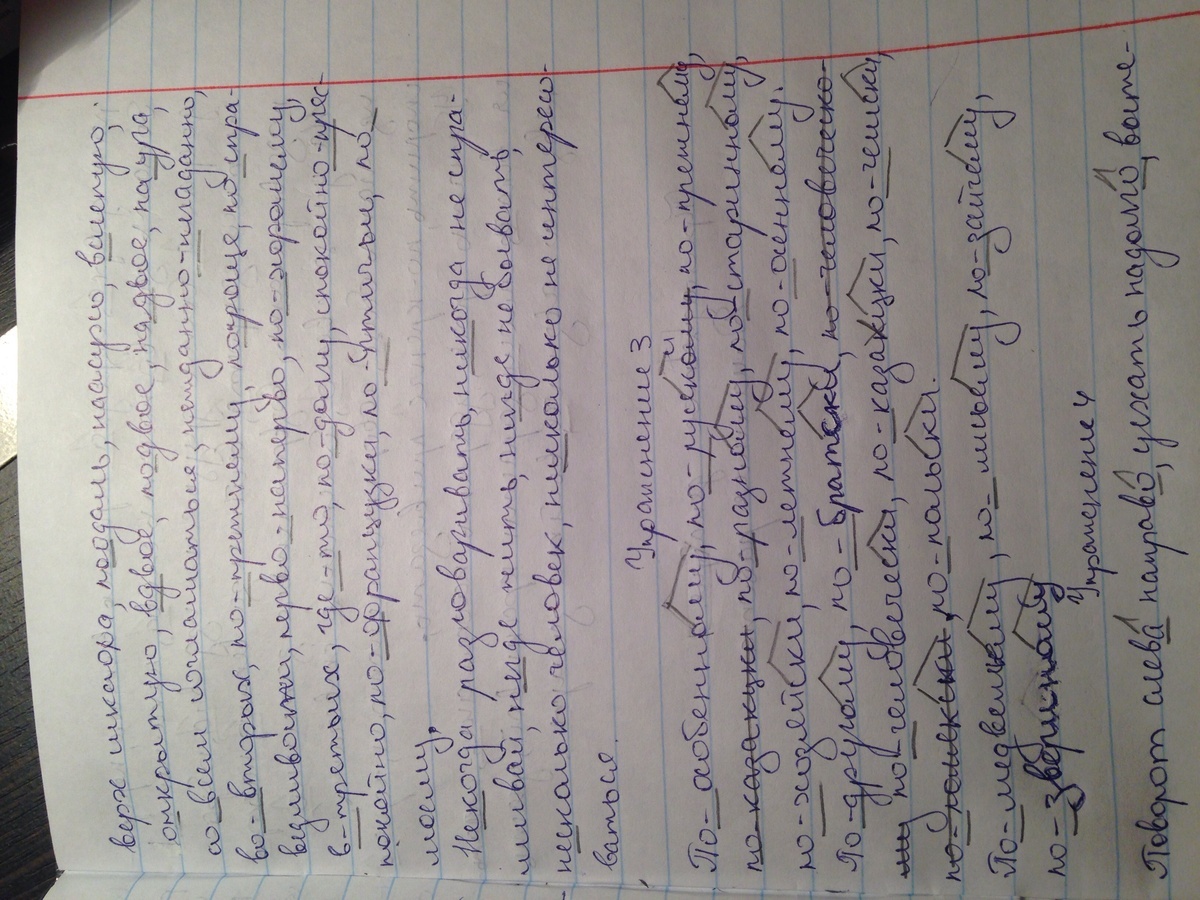 верх шкафа, поодаль, насухо, вплотную,
открытую, вдвое, подвое, надвое, наугад,
со всем согласиться, нежданно-негаданно,
во-вторых, по-прежнему, попроще, по спра-
ведливости, перво-наперво, по-хорошему,
в-третьих, где-то, по-дому, спокойно-прес-
покойно, по-французки, по-птичьи, по_
моему.
Некогда разговаривать, никогда не спра-
шивай, негде пешть, нигде не бывать,
несколько человек, нисколько не интересо-
ваться.
Упражнение 3
По-особенному, по-русски, по-прежнему,
по-казацки, по-разному, по-старинному,
по-житейски, по-летнему, по-осеннему.
По-другому, по-братски, по-человечески
по-человечески, по-казацки, по-чешски,
по-польски, по-польски.
По-медвежьи, по-лисьему, по-зайчему,
по-звериному
Упражнение 4
Поворот слева направо, уехать надолго, выте-